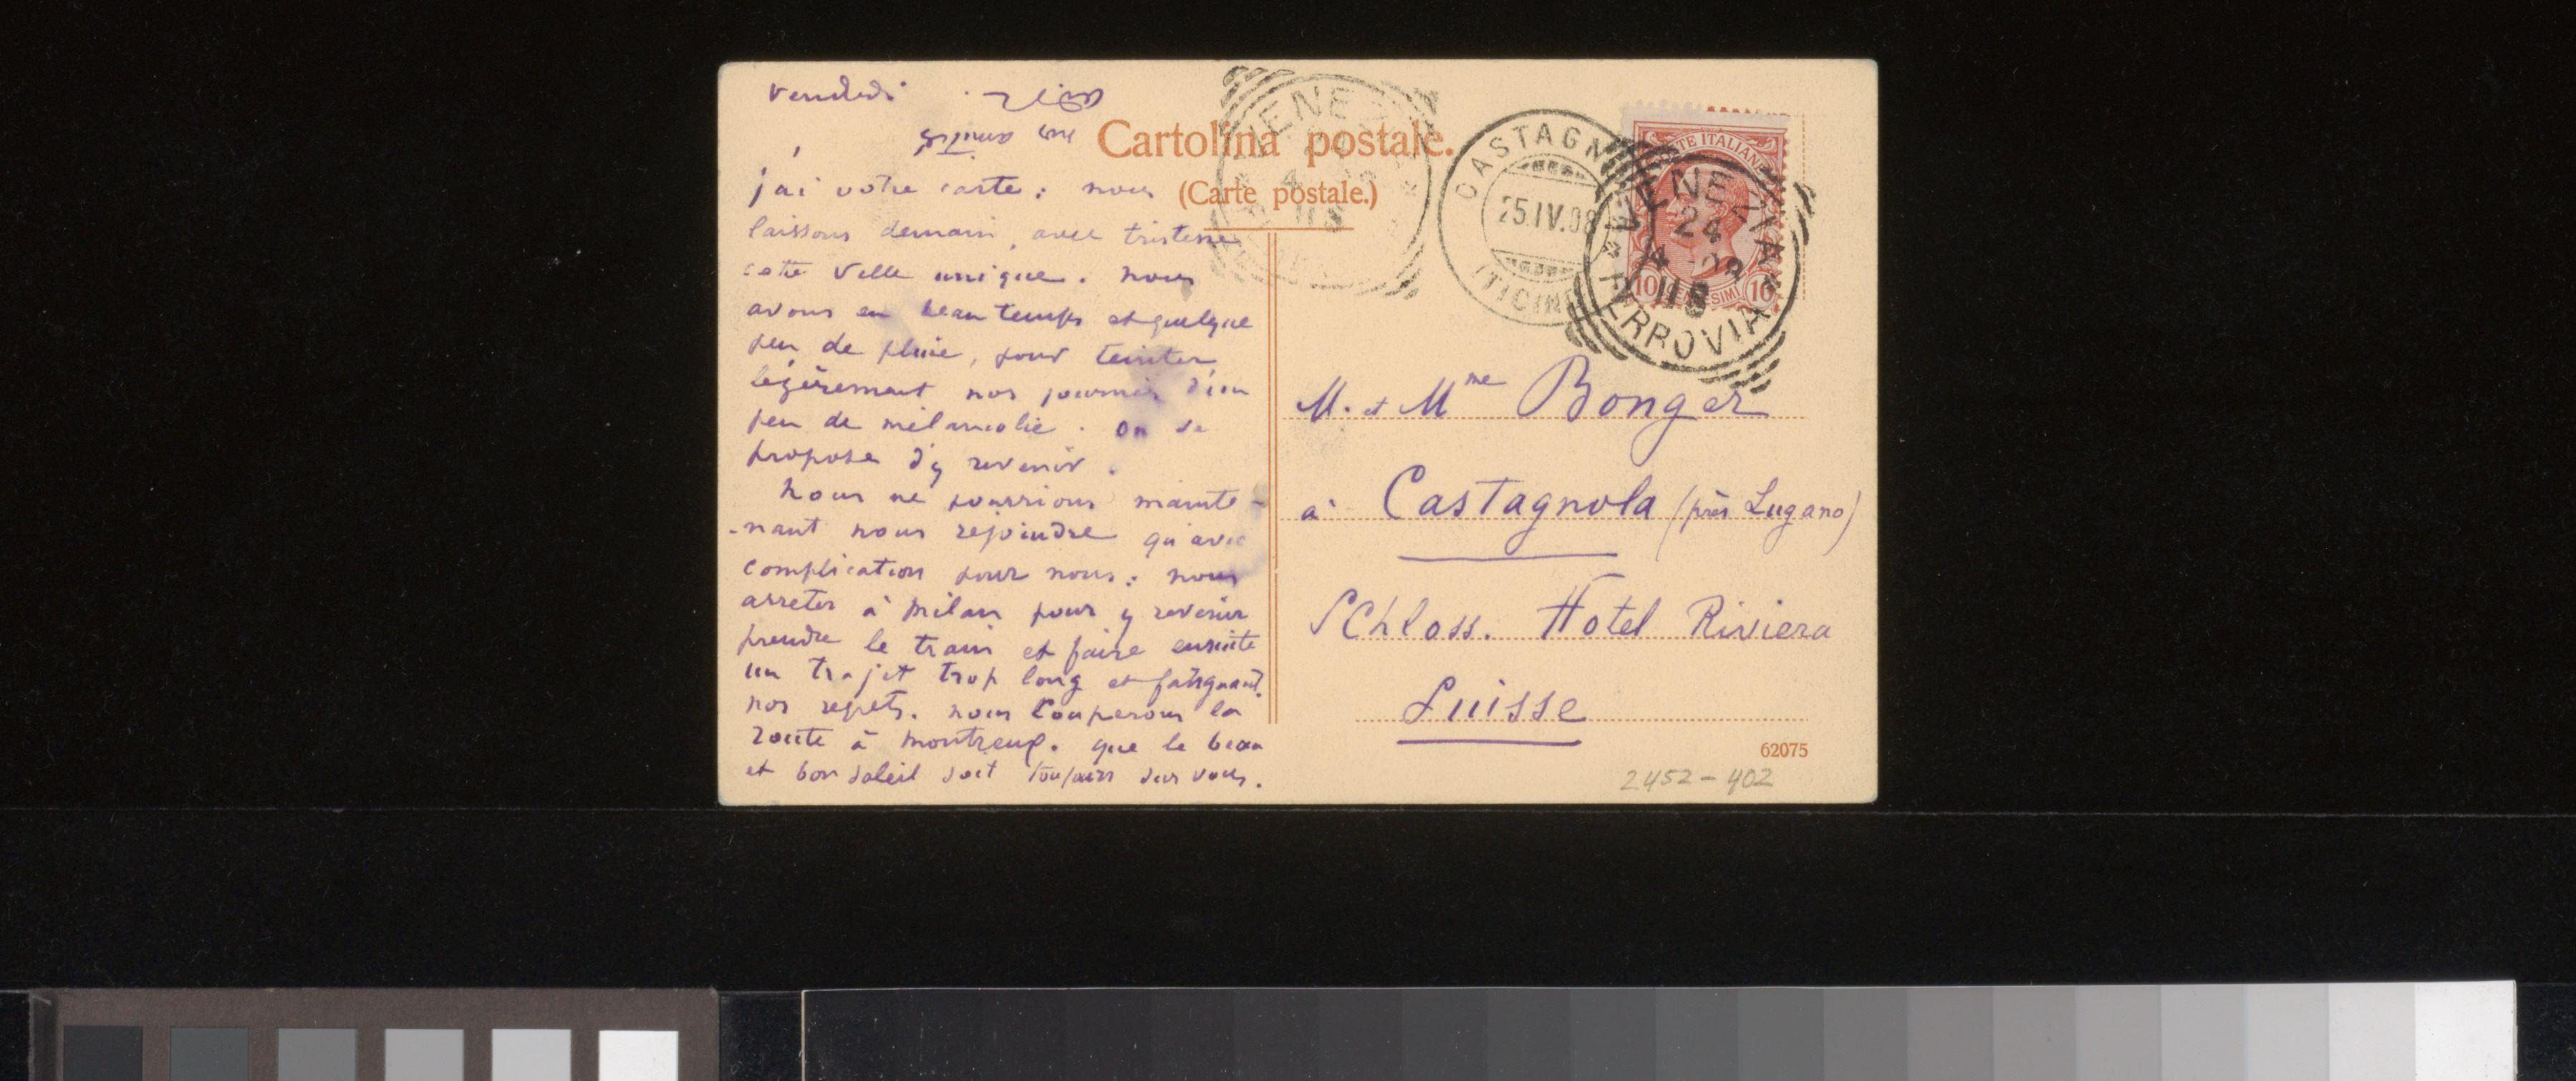 Vendredi
nos amitiés
Cartolina postale.
(Carte postale.)
j'ai votre carte : nous
laissons demain, avec tristesse
cette ville unique. nous
avons eu beau temps et quelque
peu de pluie, pour teinter
légèrement nos journées d'un
peu de mélancolie. on se
propose d'y revenir.
nous ne pourrions mainte-
-nant nous rejoindre qu'avec
complication pour nous : nous
arreter à Milan pour y revenir
prendre le train et faire ensuite
un trajet trop long et fatiguant.
nos regrets. nous couperons la
route à Montreux. que le beau
et bon soleil soit toujours sur vous.
VENEZIA
CASTAGN
25.IV.08
(TICINO
TE ITALIANE
10 10
VENEZIA
24
4 - 08
11 S
FERROVIA
M. et Mme Bonger
à Castagnola (près Lugano)
Schloss. Hotel Riviera
Suisse
62075
2452-402